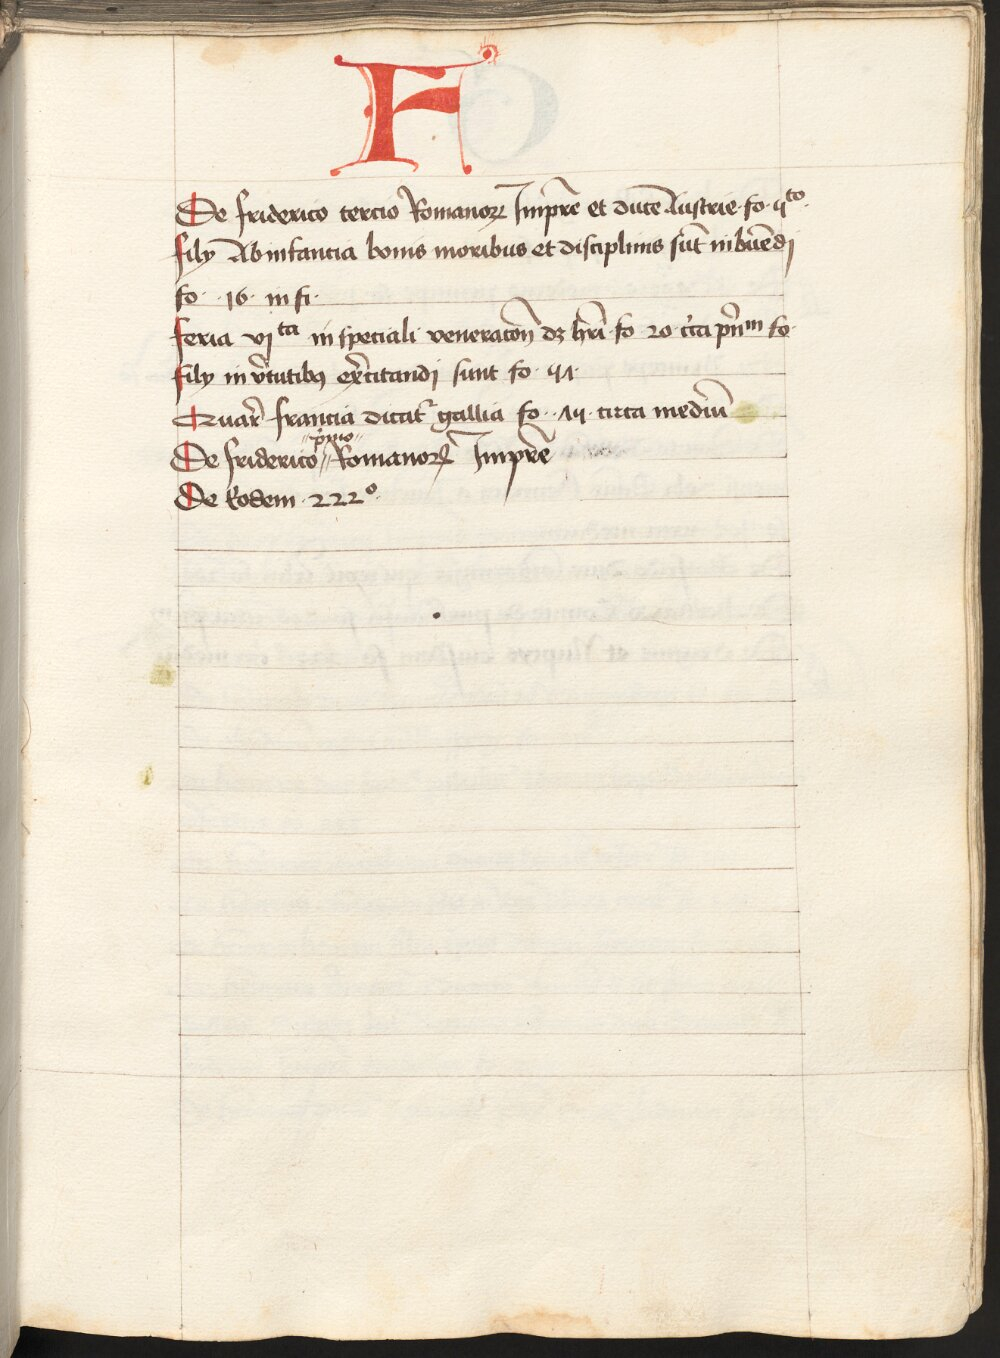 F
De friderico tercio Romanoꝝ Impr̄e et duce Austrie fo 4to
filÿ Ab infancia bonis moribus et disciplinis sūt inbuēdj
fo · 16 · in fi ·
feria vjta in speciali veneracōn dꝫ hr̄i fo 20 circa prīm fo
filÿ in vtutibꝫ exercitandj sunt fo · 41 ·
Quar francia dicat gallia fo · 14 · circa mediū
De friderico primo Romanoꝝ Impr̄e
De Eodem · 222o